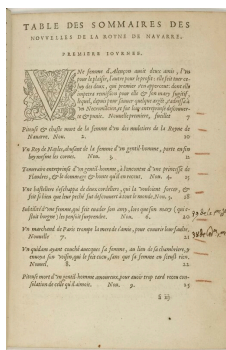 TABLE DES SOMMAIRES DES
NOVVELLES DE LA ROYNE DE NAVARRE.
PREMIERE IOVRNEE.
VNe femme d'Alençon auoit deux amis, l'vn
pour le plaisir, l'autre pour le prouffit: elle feit tuer ce-
luy des deux, qui premier s'en apperceut: dont elle
impetra remission pour elle & son mary fugitif,
lequel, depuis pour sauuer quelque argent, s'adressa à
vn Necromancien, & fut leur entreprise descouuer-
te & punie. Nouuelle premiere, fueillet 7
Piteuse & chaste mort de la femme d'vn des muletiers de la Royne de
Nauarre. Nou. 2. 10
Vn Roy de Naples, abusant de la femme d'vn gentil-homme, porte en fin
luy mesme les cornes. Nou. 3.
Temeraire entreprinse d'vn gentil-homme, à l'encontre d'vne princesse de
Flandres, & le dommage & honte qu'il en receut. Nou. 4.
Vne basteliere s'eschappa de deux cordeliers, qui la vouloient forcer, &
feit si bien que leur peché fut descouuert à tout le monde. Nou. 5.
Subtilité d'vne femme, qui feit euader son amy, lors que son mary (qui e-
stoit borgne) les pensoit surprendre. Nou. 6. 20
Vn marchand de Paris trompe la mere de s'amie, pour couurir leur faulte.
Nouuelle 7. 21
Vn quidam ayant couché auecques sa femme, au lieu de sa chambriere, y
enuoya son voisin, qui le feit cocu, sans que sa femme en sceust rien.
Nouuel. 8. 22
Piteuse mort d'vn gentil-homme amoureux, pour auoir trop tard receu con-
solation de celle qu'il aimoit. Nou. 9.